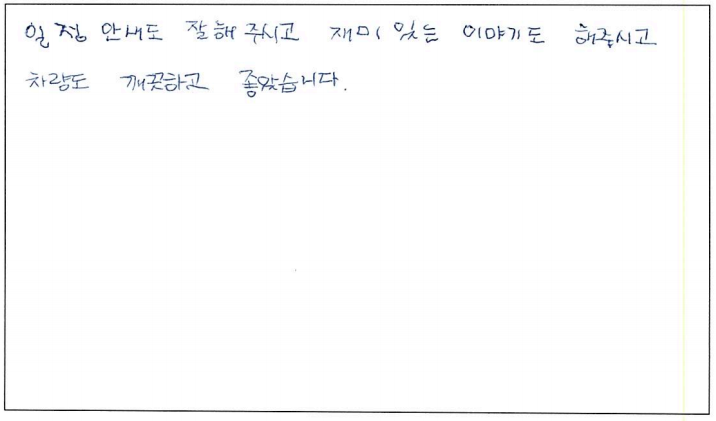 일정 안내도 잘해 주시고 재미 있는 이야기도 해주시고
차량도 깨끗하고 좋았습니다.